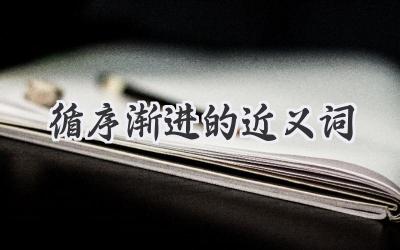 循序渐进的近义词